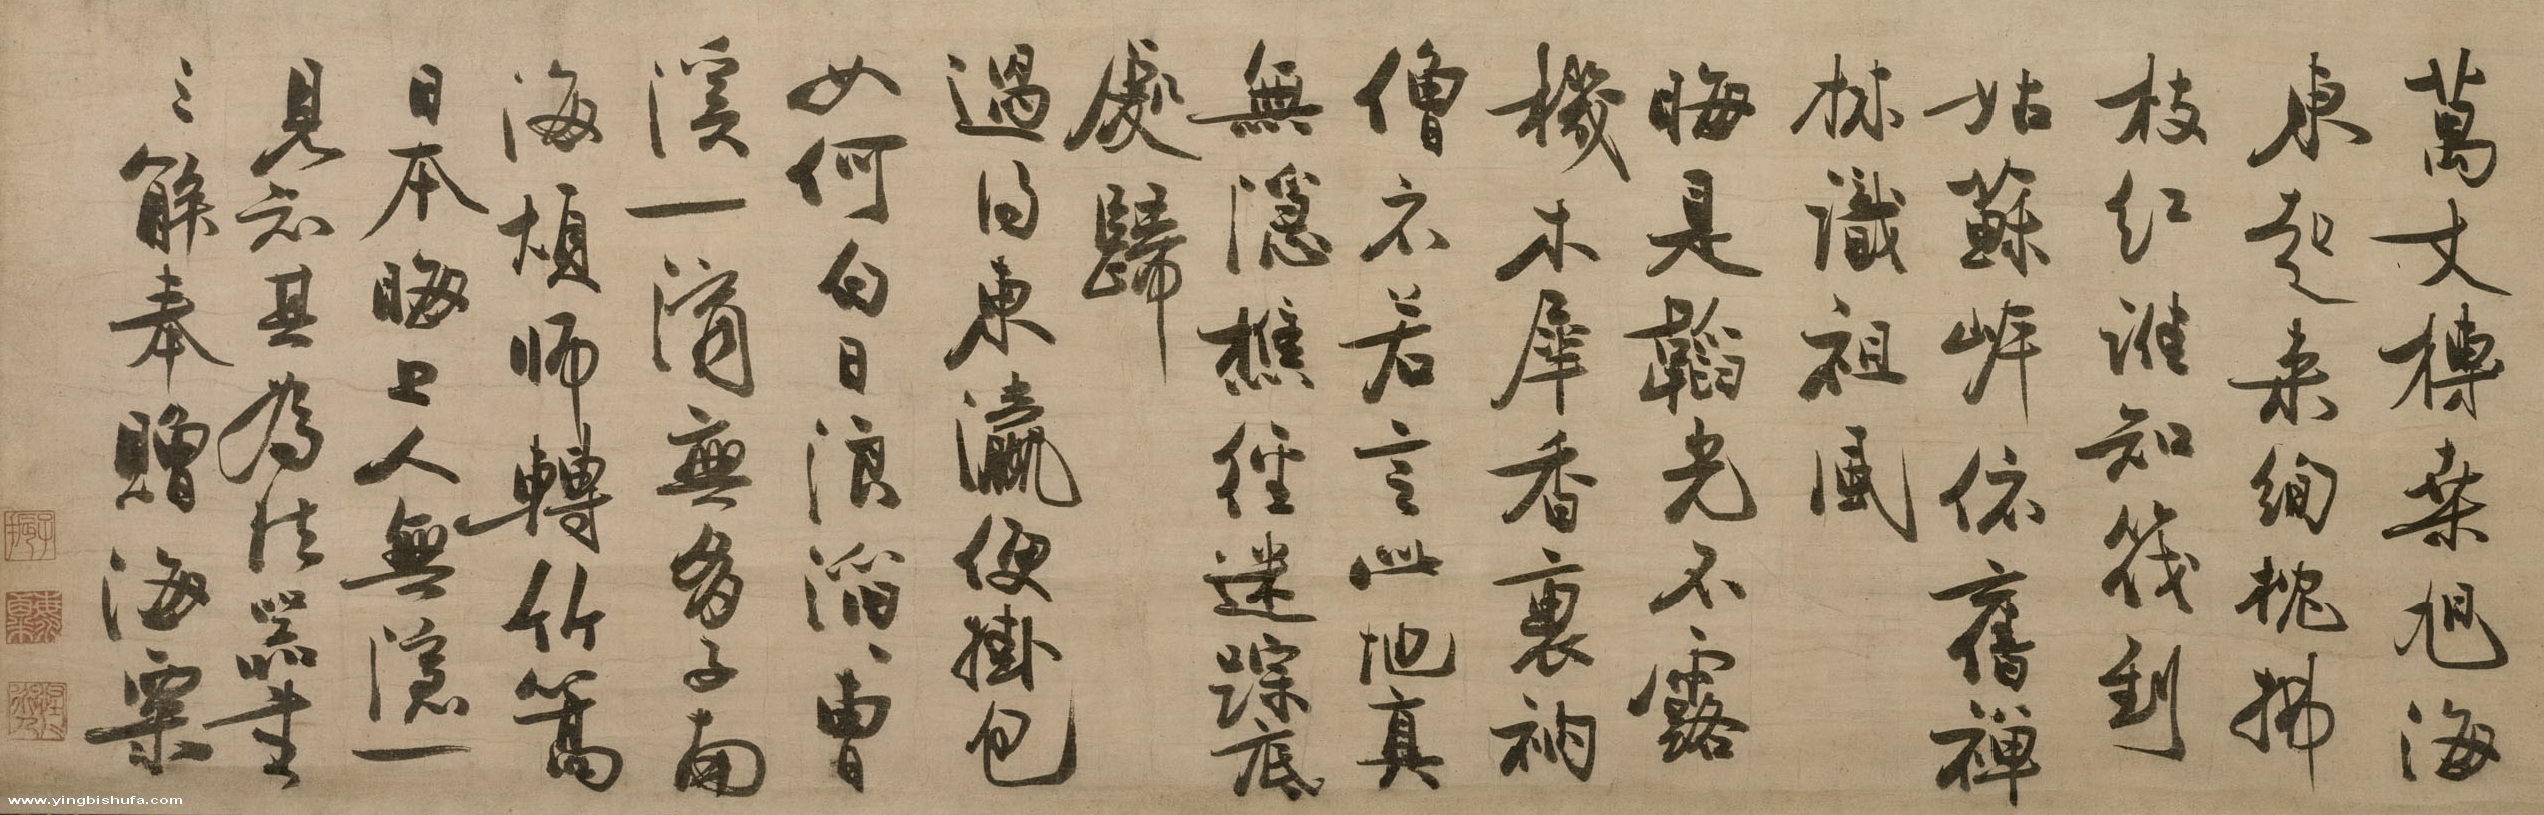 萬丈榑桑旭海
東起来絢枕拂
枝红誰知筏到
姑蘇岸依舊禪
林識祖風
晦是韜光不露
機木犀香裏衲
僧不若言此地真
無隱樵徑迷蹤底
處歸
過得東瀛便掛包
如何白日浪滔、曹
溪一滴無多子南
海煩師轉竹篙
日本晦上人無隱一
見知其為法器書
三解奉贈 海粟
www.yingbishufa.com